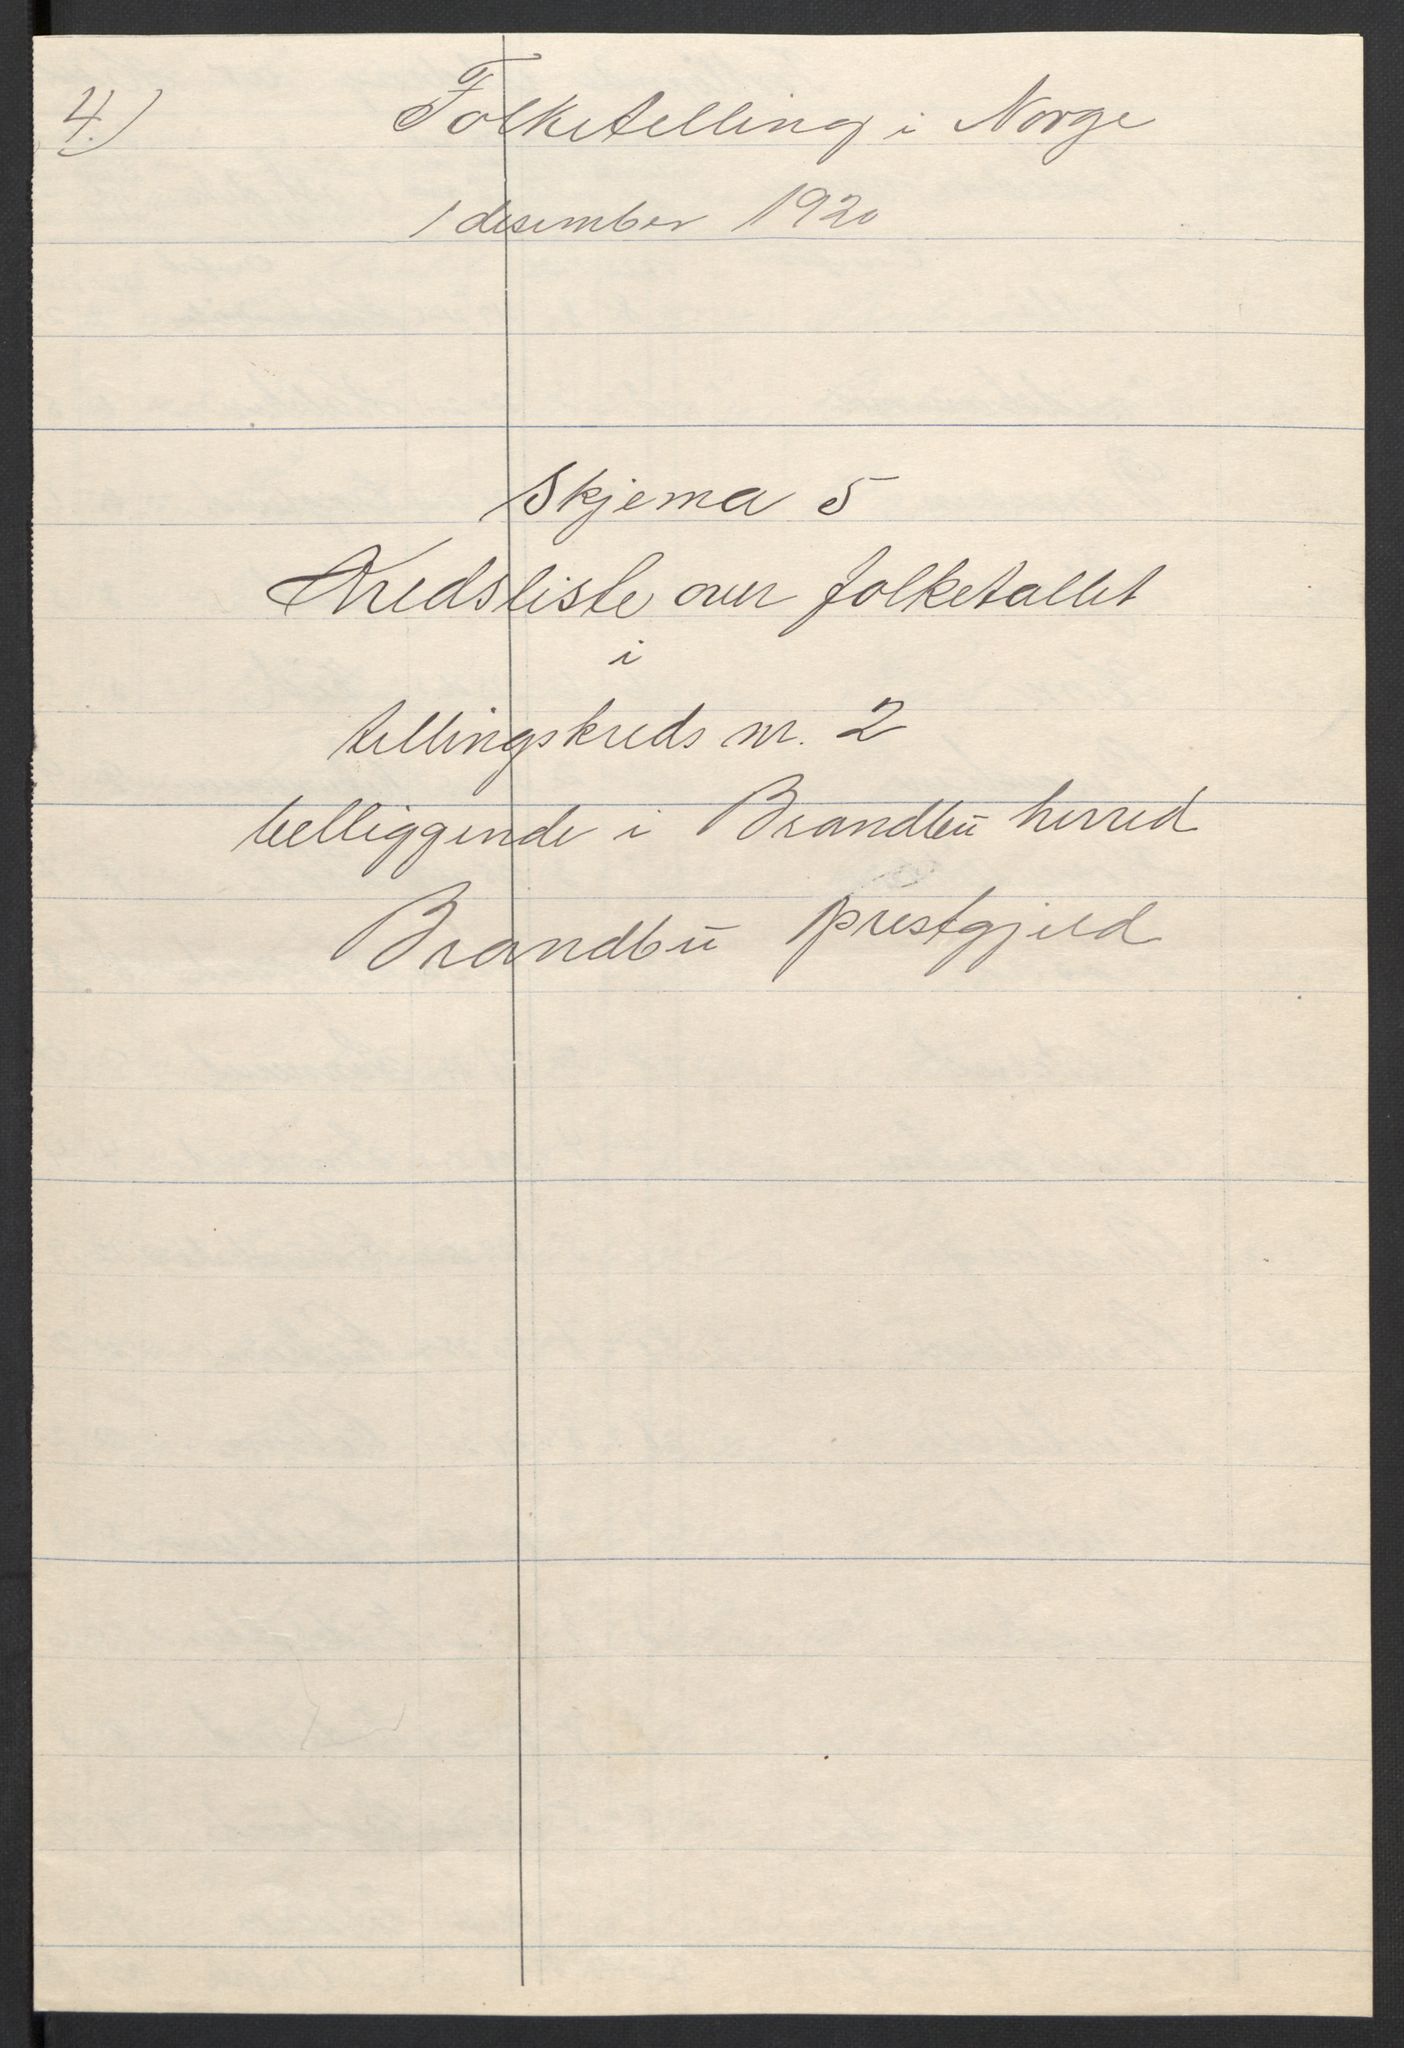 4.)
Folketelling i Norge
1 desember 1920
Skjema 5
Kredsliste over folketallet
i
tellingskreds nr. 2
beliggende i Brandbu herred
Brandbu prestgjeld